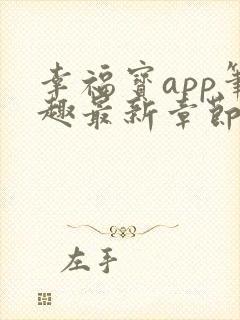 幸福宝app笔
趣最新章节
左手